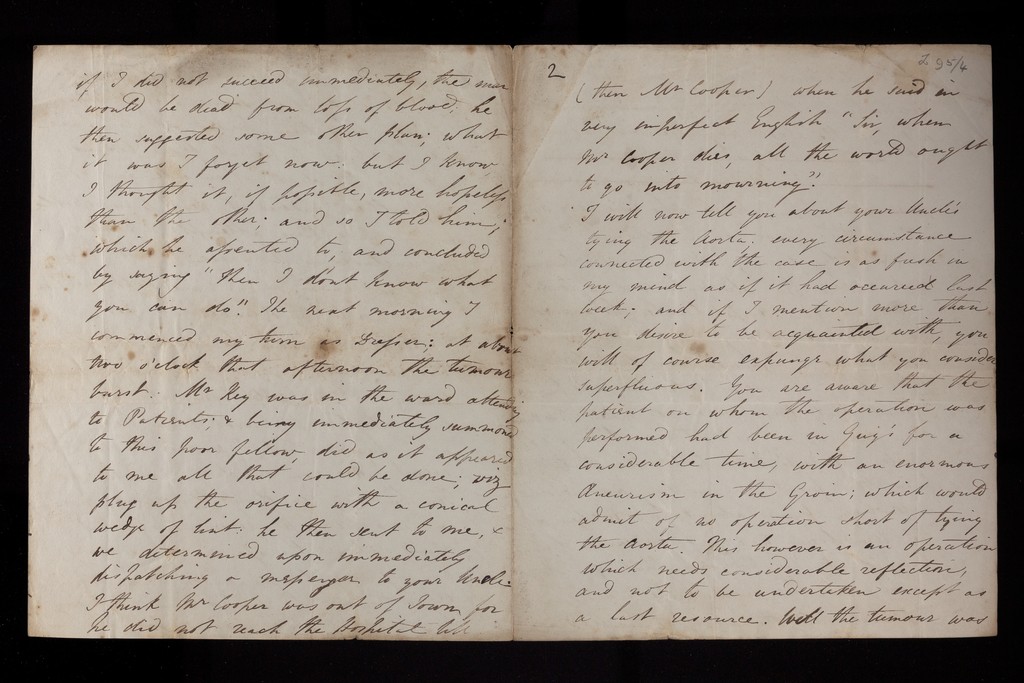 if I did not succeed immediately, the man
would be dead from loss of blood; he
then suggested some other plan; what
it was I forget now: but I know
I thought it, if possible, more hopeless
than the other; and so I told him;
which he assented to, and concluded
by saying "then I dont know what
you can do". The next morning I
commenced my turn as Dresser: at about
two o'clock that afternoon the tumour
burst. Mr Key was in the ward attending
to Patients & being immediately summoned
to this poor fellow, did as it appeared
to me all that could be done; viz
plug up the orifice with a conical
wedge of lint: he then sent to me, &
we determined upon immediately
dispatching a messenger to your Uncle.
I think Mr Cooper was out of Town, for
he did not reach the Hospital till
2
2 95/4
(then Mr Cooper) when he said in
very imperfect English "Sir, when
Mr Cooper dies, all the world ought
to go into mourning".
I will now tell you about your Uncle's
tying the Aorta: every circumstance
connected with the case is as fresh in
my mind as if it had occurred last
week. and if I mention more than
you desire to be acquainted with, you
will of course expunge what you consider
superfluous. You are aware that the
patient on whom the operation was
performed had been in Guy's for a
considerable time, with an enormous
Aneurism in the Groin; which would
admit of no operation short of tying
the Aorta. This however is an operation
which needs considerable reflection,
and not to be undertaken except as
a last resource. Well the tumour was